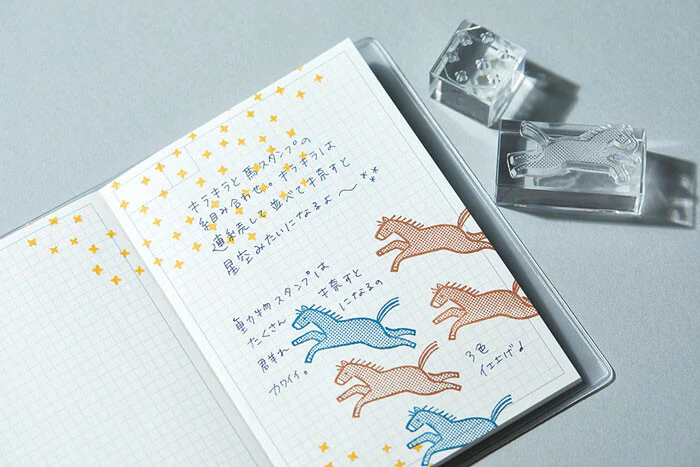 キラキラと馬スタンプの
組み合わせ。キラキラは
連続して並べて捺すと
星空みたいになるよ〜
動物スタンプは
たくさん 捺すと
群れ になるの
カワイイ。
3色